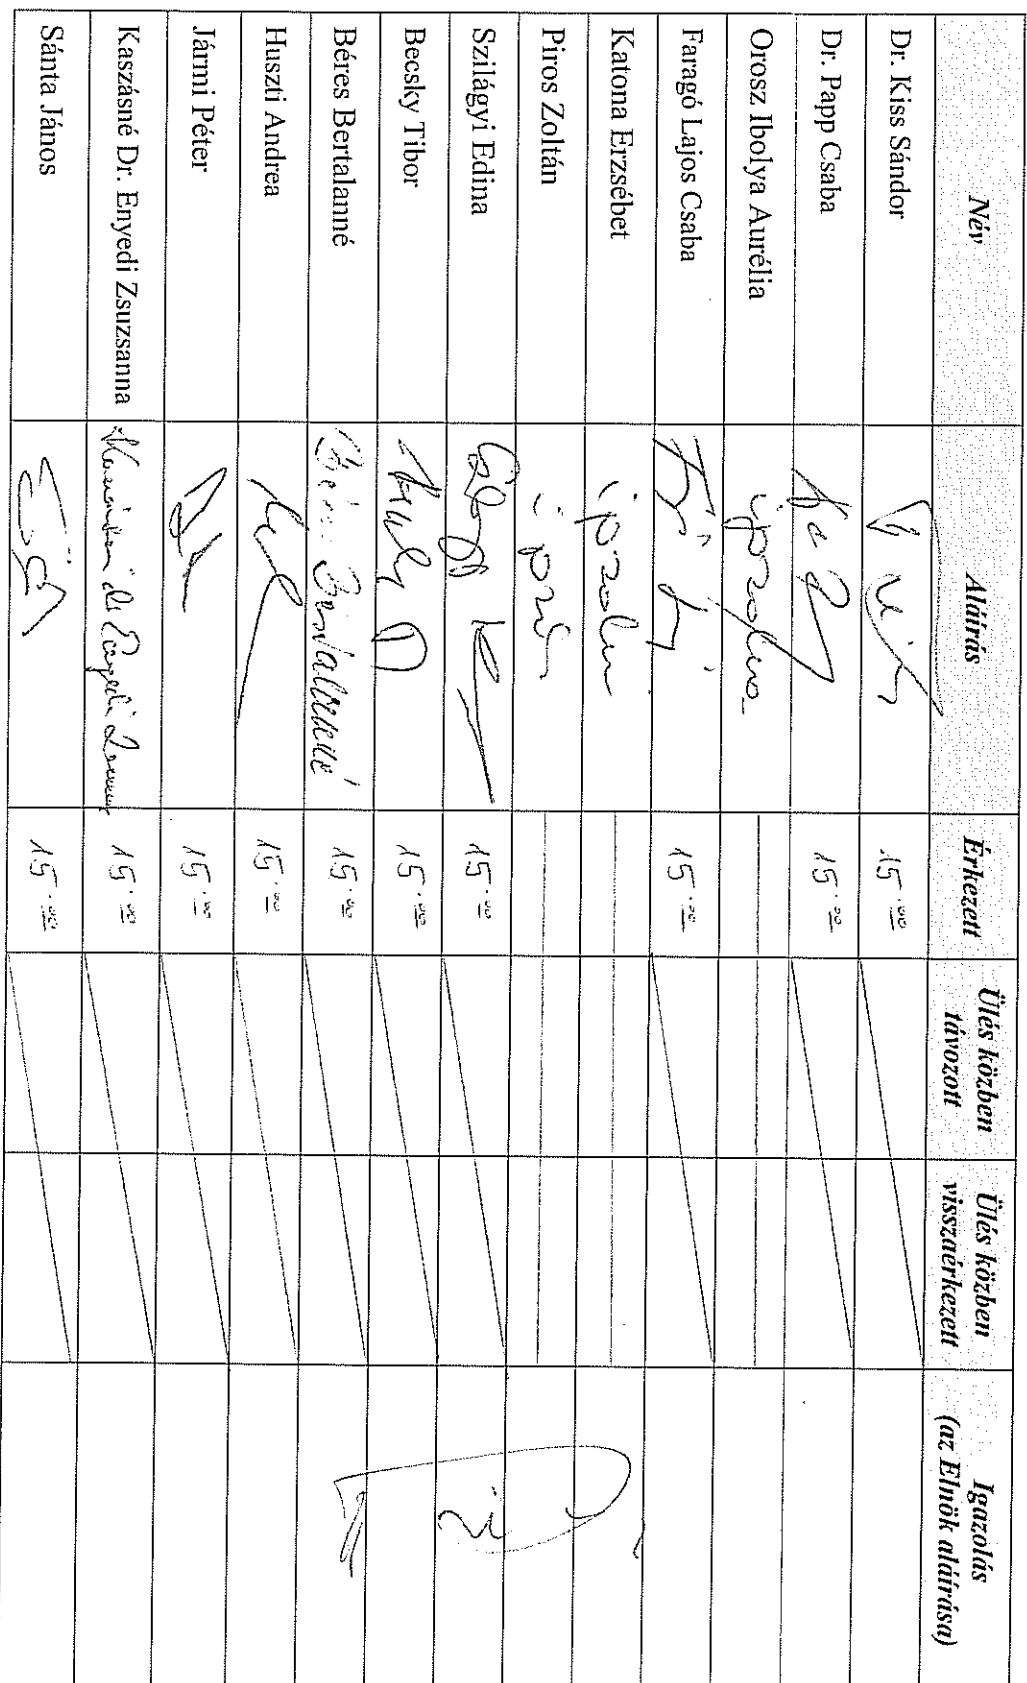 Név Aláírás Érkezett Ülés közben távozott Ülés közben visszaérkezett Igazolás (az Elnök aláírása)
Dr. Kiss Sándor 15.00
Dr. Papp Csaba 15.00
Orosz Ibolya Aurélia igazolva
Faragó Lajos Csaba 15.00
Katona Erzsébet igazolva
Piros Zoltán
Szilágyi Edina 15.00
Becsky Tibor 15.00
Béres Bertalanné Béres Bertalanné 15.00
Huszti Andrea 15.00
Jármi Péter 15.00
Kaszásné Dr. Enyedi Zsuzsanna 15.00
Sánta János 15.00